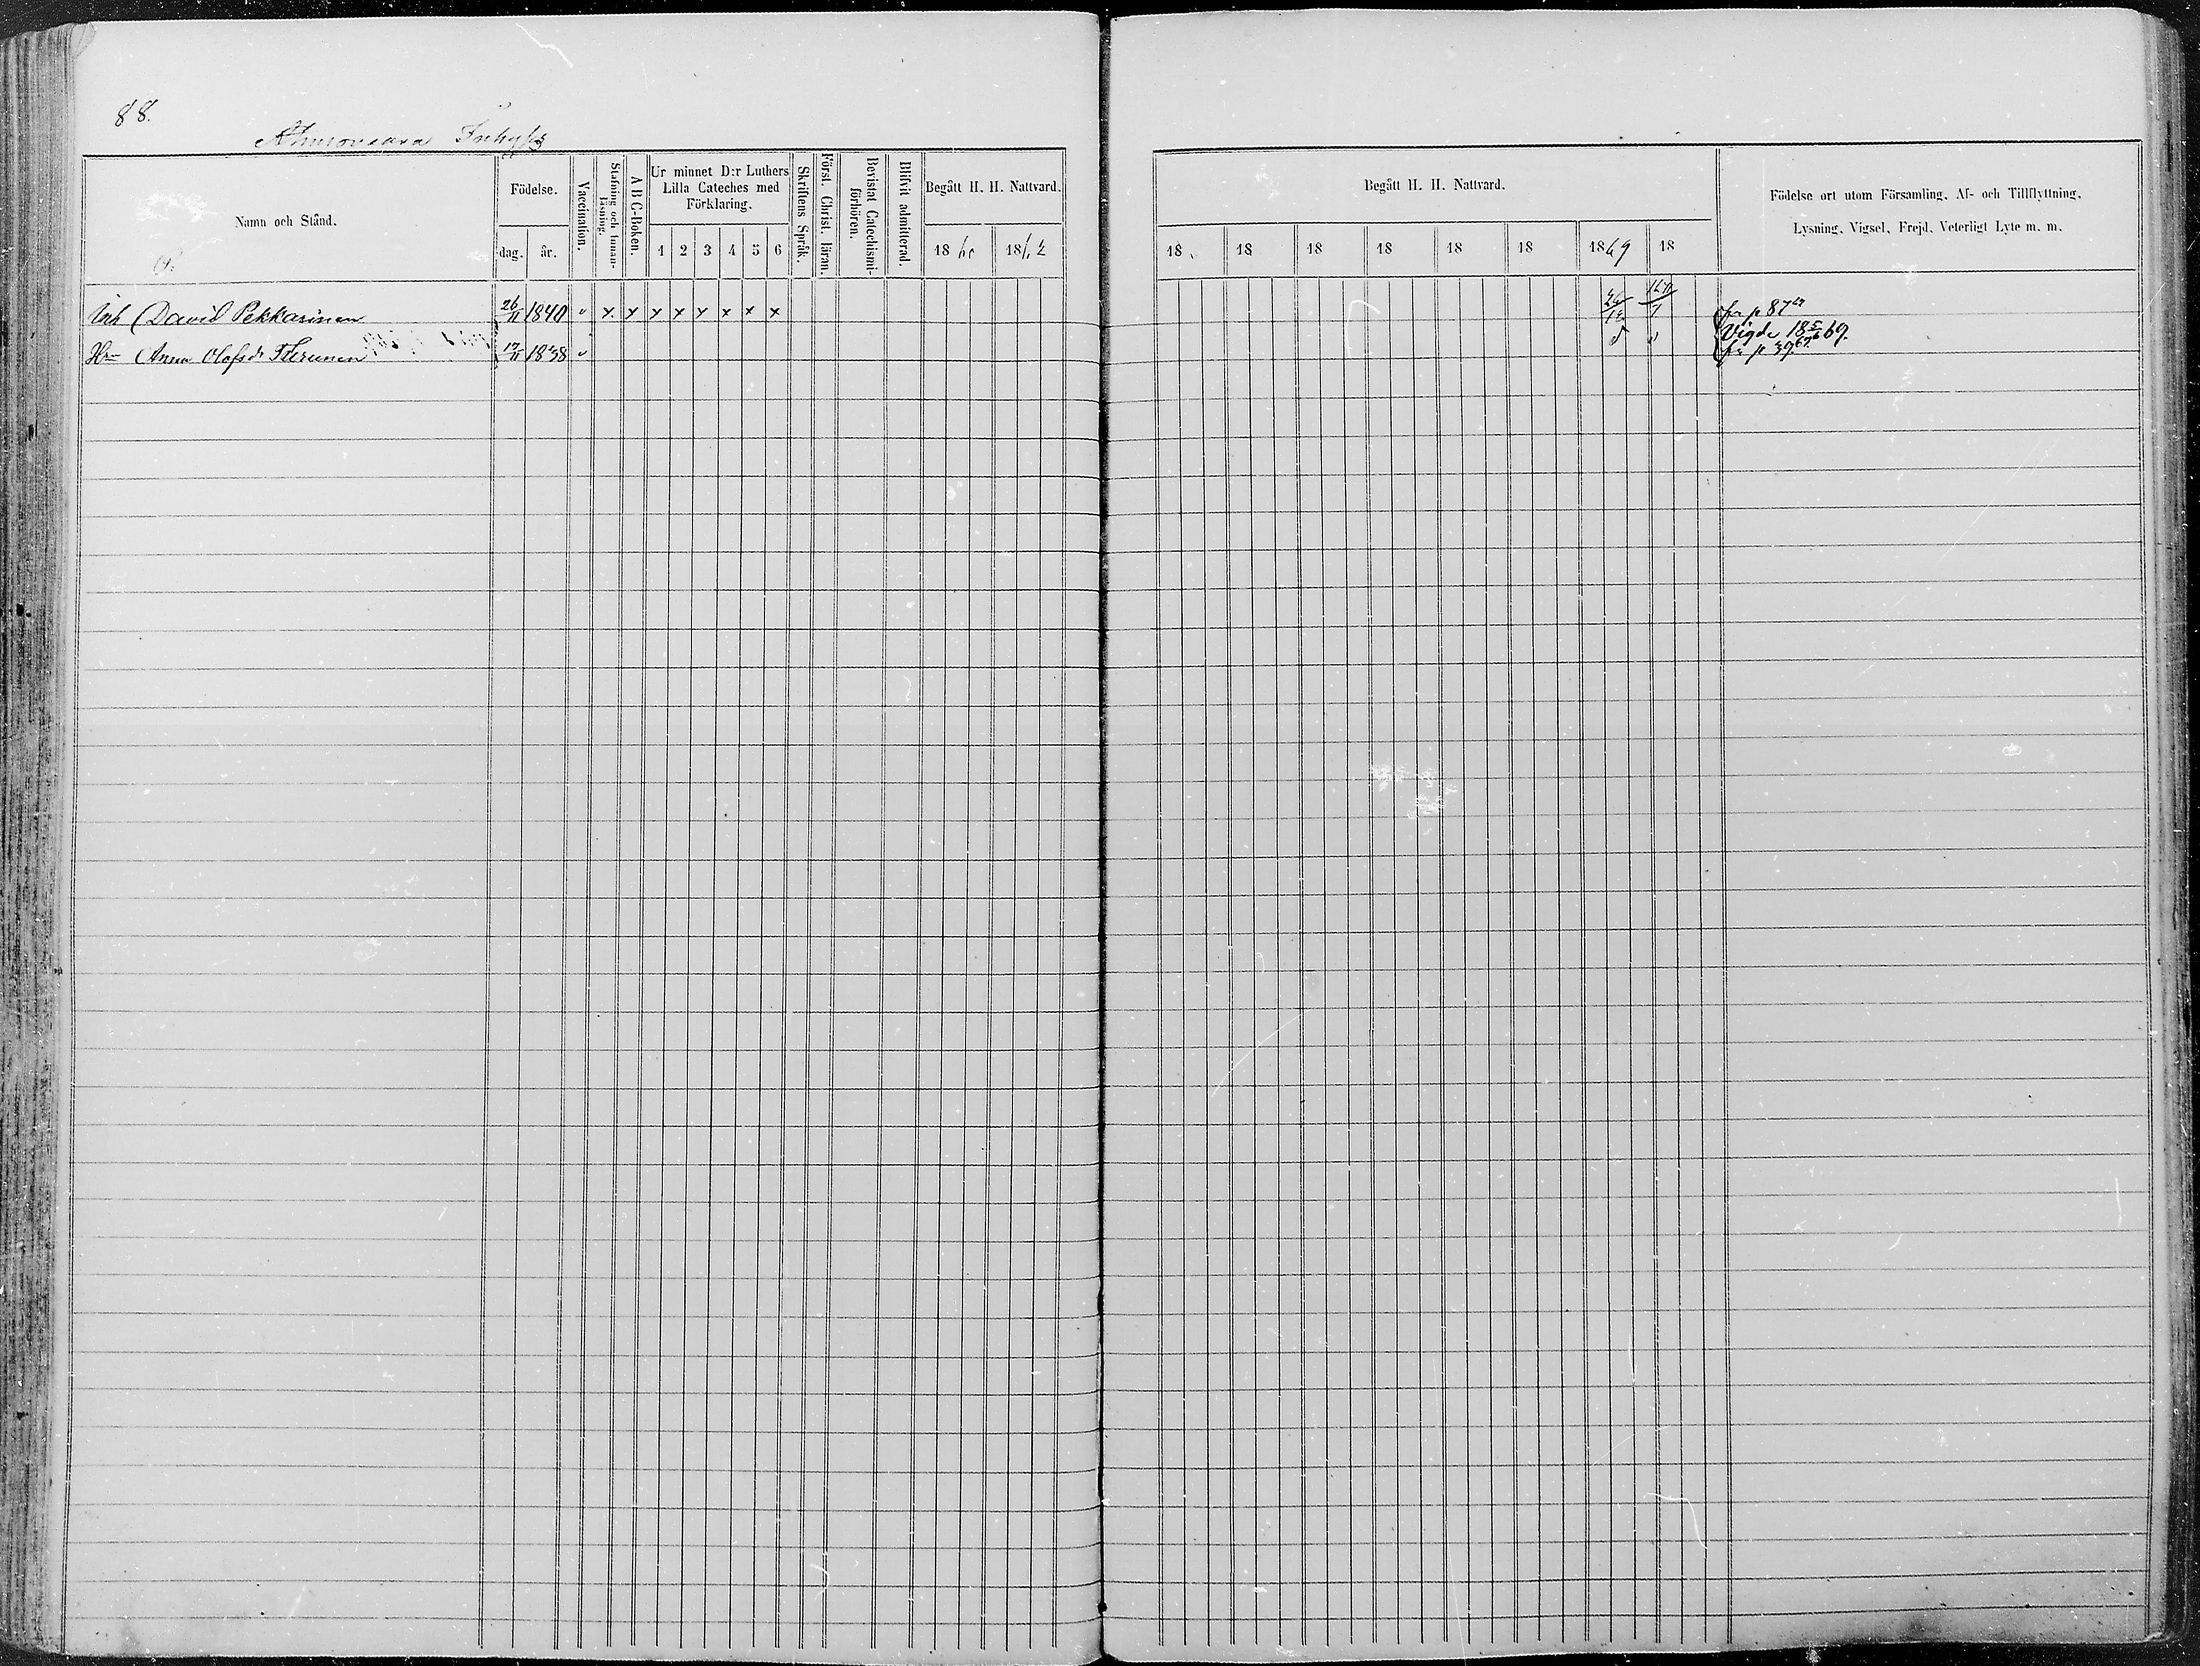 88.
Inhyses
Namn och Stånd.
Födelse.
dag. år.
Vaccination.
Stafning och Innanläsning.
A B C-Boken.
Ur minnet D:r Luthers Lilla Cateches med Förklaring.
1 2 3 4 5 6
Skriftens Språk.
Först. Christ. läran.
Bevistat Catechismiförhören.
Blifvit admitterad.
Begått H. H. Nattvard.
18 18
Begått H. H. Nattvard.
18 18 18 18 18 18 1869 18
Födelse ort utom Församling, Af- och Tillflyttning,
Lysning, Vigsel, Frejd, Veterligt Lyte m. m.
Inh David Pekkarinen 26/11 1840 x x x x x x x x fr p 87
Vigde 18 5/6 69.
Hru Anna Olofsdr 17/11 1838 fr p 39